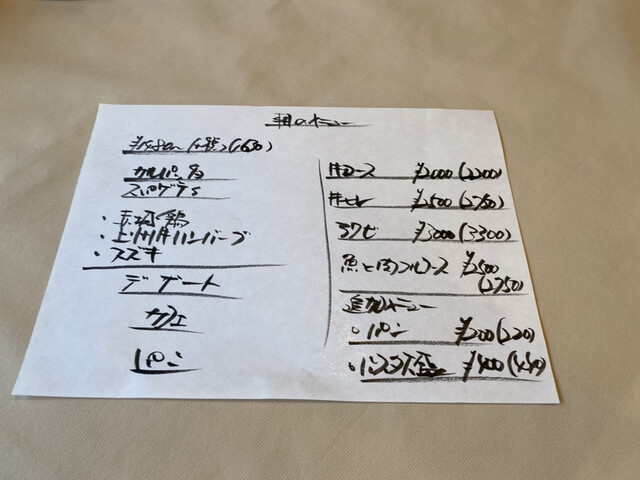 昼のメニュー
¥1500(税込1650)
カルパッチョ
スパゲティ
・赤城鶏
・上州牛ハンバーグ
・スズキ
デザート
カフェ
パン
牛ロース ¥2000(2200)
牛ヒレ ¥2500(2750)
アワビ ¥3000(3300)
魚と肉フルコース ¥2500
(2750)
追加メニュー
・パン ¥200(220)
・パスタ大盛 ¥400(440)